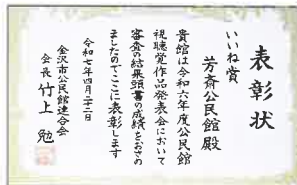 表彰状
いいね賞
芳斎公民館殿
貴館は令和六年度公民館
視聴覚作品発表会において
審査の結果頭書の成績をおさめ
ましたのでここに表彰します
令和七年四月二十二日
金沢市公民館連合会
会長 竹上 勉